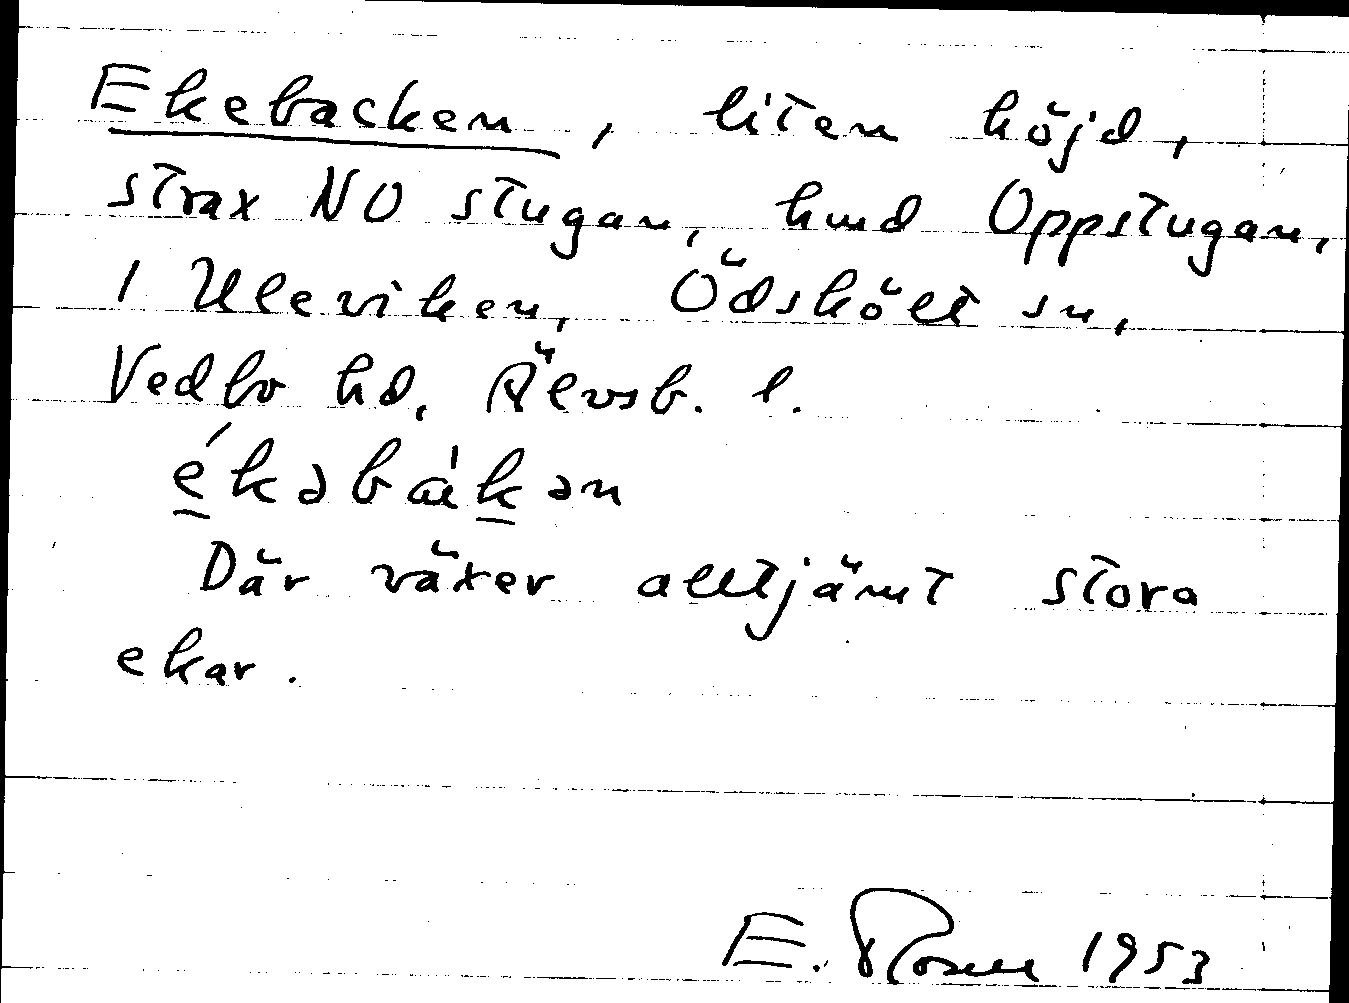 Ekebacken, liten höjd,
strax NO stugan, hmd Oppstugan,
i Uleviken, Ödskölt sn,
Vedbo hd, Älvsb. l.
Där växer alltjämt stora
ekar.
E. 1953